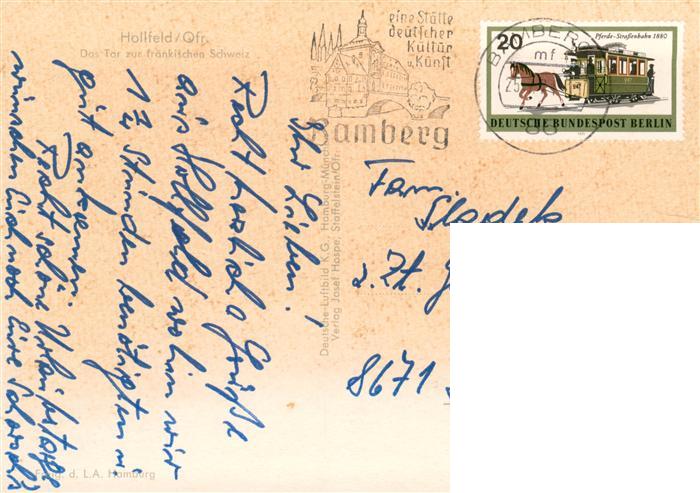 Hollfeld/Ofr.
Das Tor zur fränkischen Schweiz
eine Stätte
deutscher
Kultur
u. Kunst
Bamberg
BAMBERG
mf
86
20
Pferde-Straßenbahn 1880
DEUTSCHE BUNDESPOST BERLIN
Ihr Lieben!
Recht herzliche Grüße
aus Hollfeld wohin wir
1¾ Stunden benötigten u.
gut ankamen.
Recht schöne Urlaubstage
wünschen Euch noch Eure
Fam.
Sladek
z. Zt.
8671
Deutsche-Luftbild K.G., Hamburg-München
Verlag Josef Hospe, Staffelstein/Ofr.
Freig. d. L.A. Hamburg